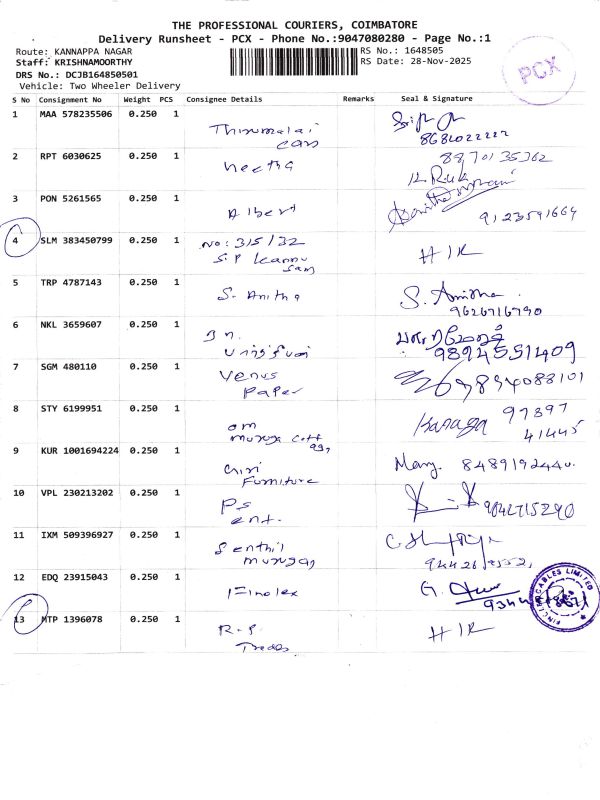 THE PROFESSIONAL COURIERS, COIMBATORE
Delivery Runsheet - PCX - Phone No.:9047080280 - Page No.:1
Route: KANNAPPA NAGAR
RS No.: 1648505
Staff: KRISHNAMOORTHY
RS Date: 28-Nov-2025
DRS No.: DCJB164850501
Vehicle: Two Wheeler Delivery
PCX
S No Consignment No Weight PCS Consignee Details Remarks Seal & Signature
1 MAA 578235506 0.250 1
Thirumalai
8684022222
2 RPT 6030625 0.250 1 8870135362
Neetha
3 PON 5261565 0.250 1
Albert 9123591664
4 SLM 383450799 0.250 1 No: 315/32
S.P Kannu
Sam
H/R
5 TRP 4787143 0.250 1
S. Anitha S. Anitha
9626716790
6 NKL 3659607 0.250 1
9894551409
7 SGM 480110 0.250 1 Venus
Paper
8 STY 6199951 0.250 1
om
muruga
Kanaga 97897
41445
9 KUR 1001694224 0.250 1
Giri
Furniture
Mary. 8489192440.
10 VPL 230213202 0.250 1
PS
ent.
9042715290
11 IXM 509396927 0.250 1
Senthil
murugan
12 EDQ 23915043 0.250 1
Finolex G.
FINOLEX CABLES LIMITED
13 MTP 1396078 0.250 1
R.P.
Trades
H/R